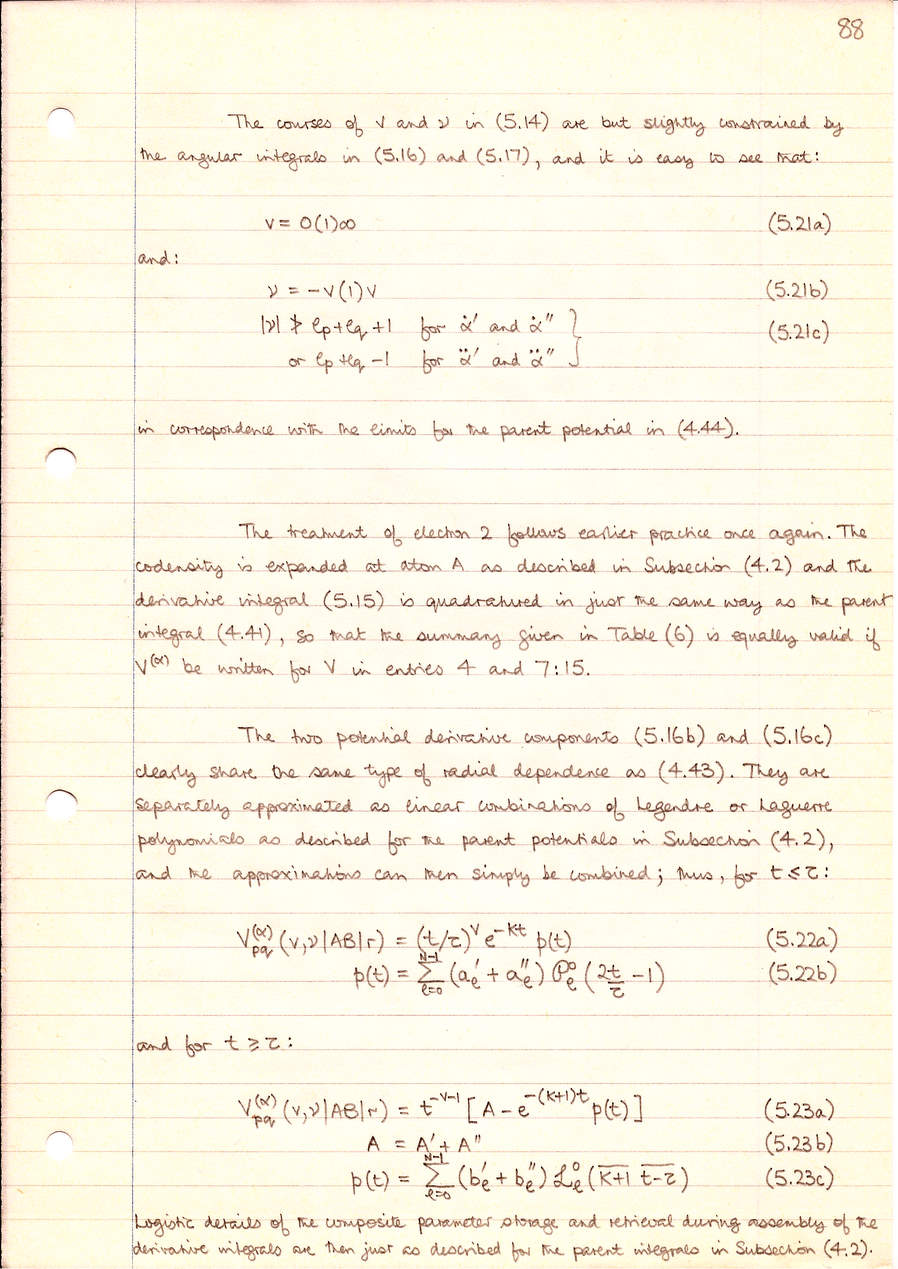 88
The courses of v and ν in (5.14) are but slightly constrained by
the angular integrals in (5.16) and (5.17), and it is easy to see that:
v = 0(1)∞ (5.21a)
and:
ν = -v(1)v (5.21b)
|ν| ≯ ℓp+ℓq+1 for α̇′ and α̇″ } (5.21c)
or ℓp+ℓq-1 for α̈′ and α̈″
in correspondence with the limits for the parent potential in (4.44).
The treatment of electron 2 follows earlier practice once again. The
codensity is expanded at atom A as described in Subsection (4.2) and the
derivative integral (5.15) is quadratured in just the same way as the parent
integral (4.41), so that the summary given in Table (6) is equally valid if
V^(α) be written for V in entries 4 and 7:15.
The two potential derivative components (5.16b) and (5.16c)
clearly share the same type of radial dependence as (4.43). They are
separately approximated as linear combinations of Legendre or Laguerre
polynomials as described for the parent potentials in Subsection (4.2),
and the approximations can then simply be combined; thus, for t ≤ τ:
V_pq^(α) (v,ν|AB|r) = (t/τ)^v e^-Kt p(t) (5.22a)
p(t) = Σ_{ℓ=0}^{N-1} (a′_ℓ + a″_ℓ) 𝒫_ℓ^0 (2t/τ - 1) (5.22b)
and for t ≥ τ:
V_pq^(α) (v,ν|AB|r) = t^-v-1 [A - e^-(K+1)t p(t)] (5.23a)
A = A′ + A″ (5.23b)
p(t) = Σ_{ℓ=0}^{N-1} (b′_ℓ + b″_ℓ) ℒ_ℓ^0 (K̅+̅1̅ t̅-̅τ̅) (5.23c)
Logistic details of the composite parameter storage and retrieval during assembly of the
derivative integrals are then just as described for the parent integrals in Subsection (4.2).